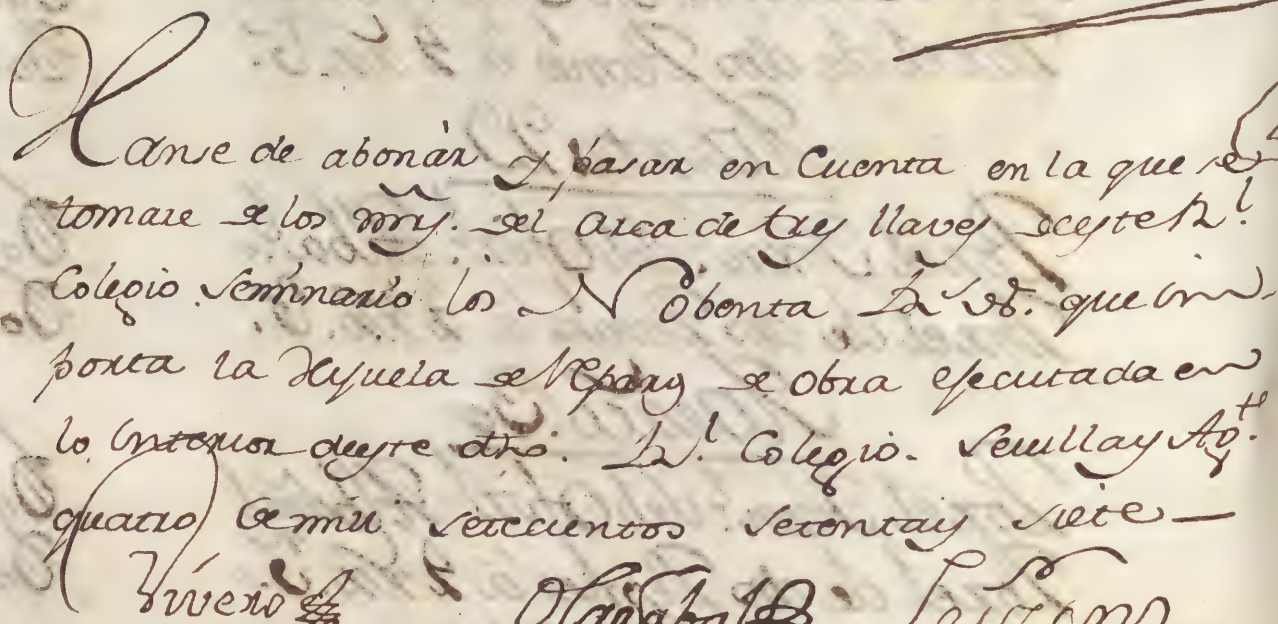 Hanse de abonàr y pasar en Cuenta en la que se
tomare de los mrs. del arca de tres llaves deeste Rl.
Colegio Seminario los Nobenta Rs. vn. que im
porta la Hijuela de Reparos de obra ejecutada en
lo interior deeste dho. Rl. Colegio. Sevilla y Agto.
quatro de mil setecientos setenta y siete —
Vivero Olazabal